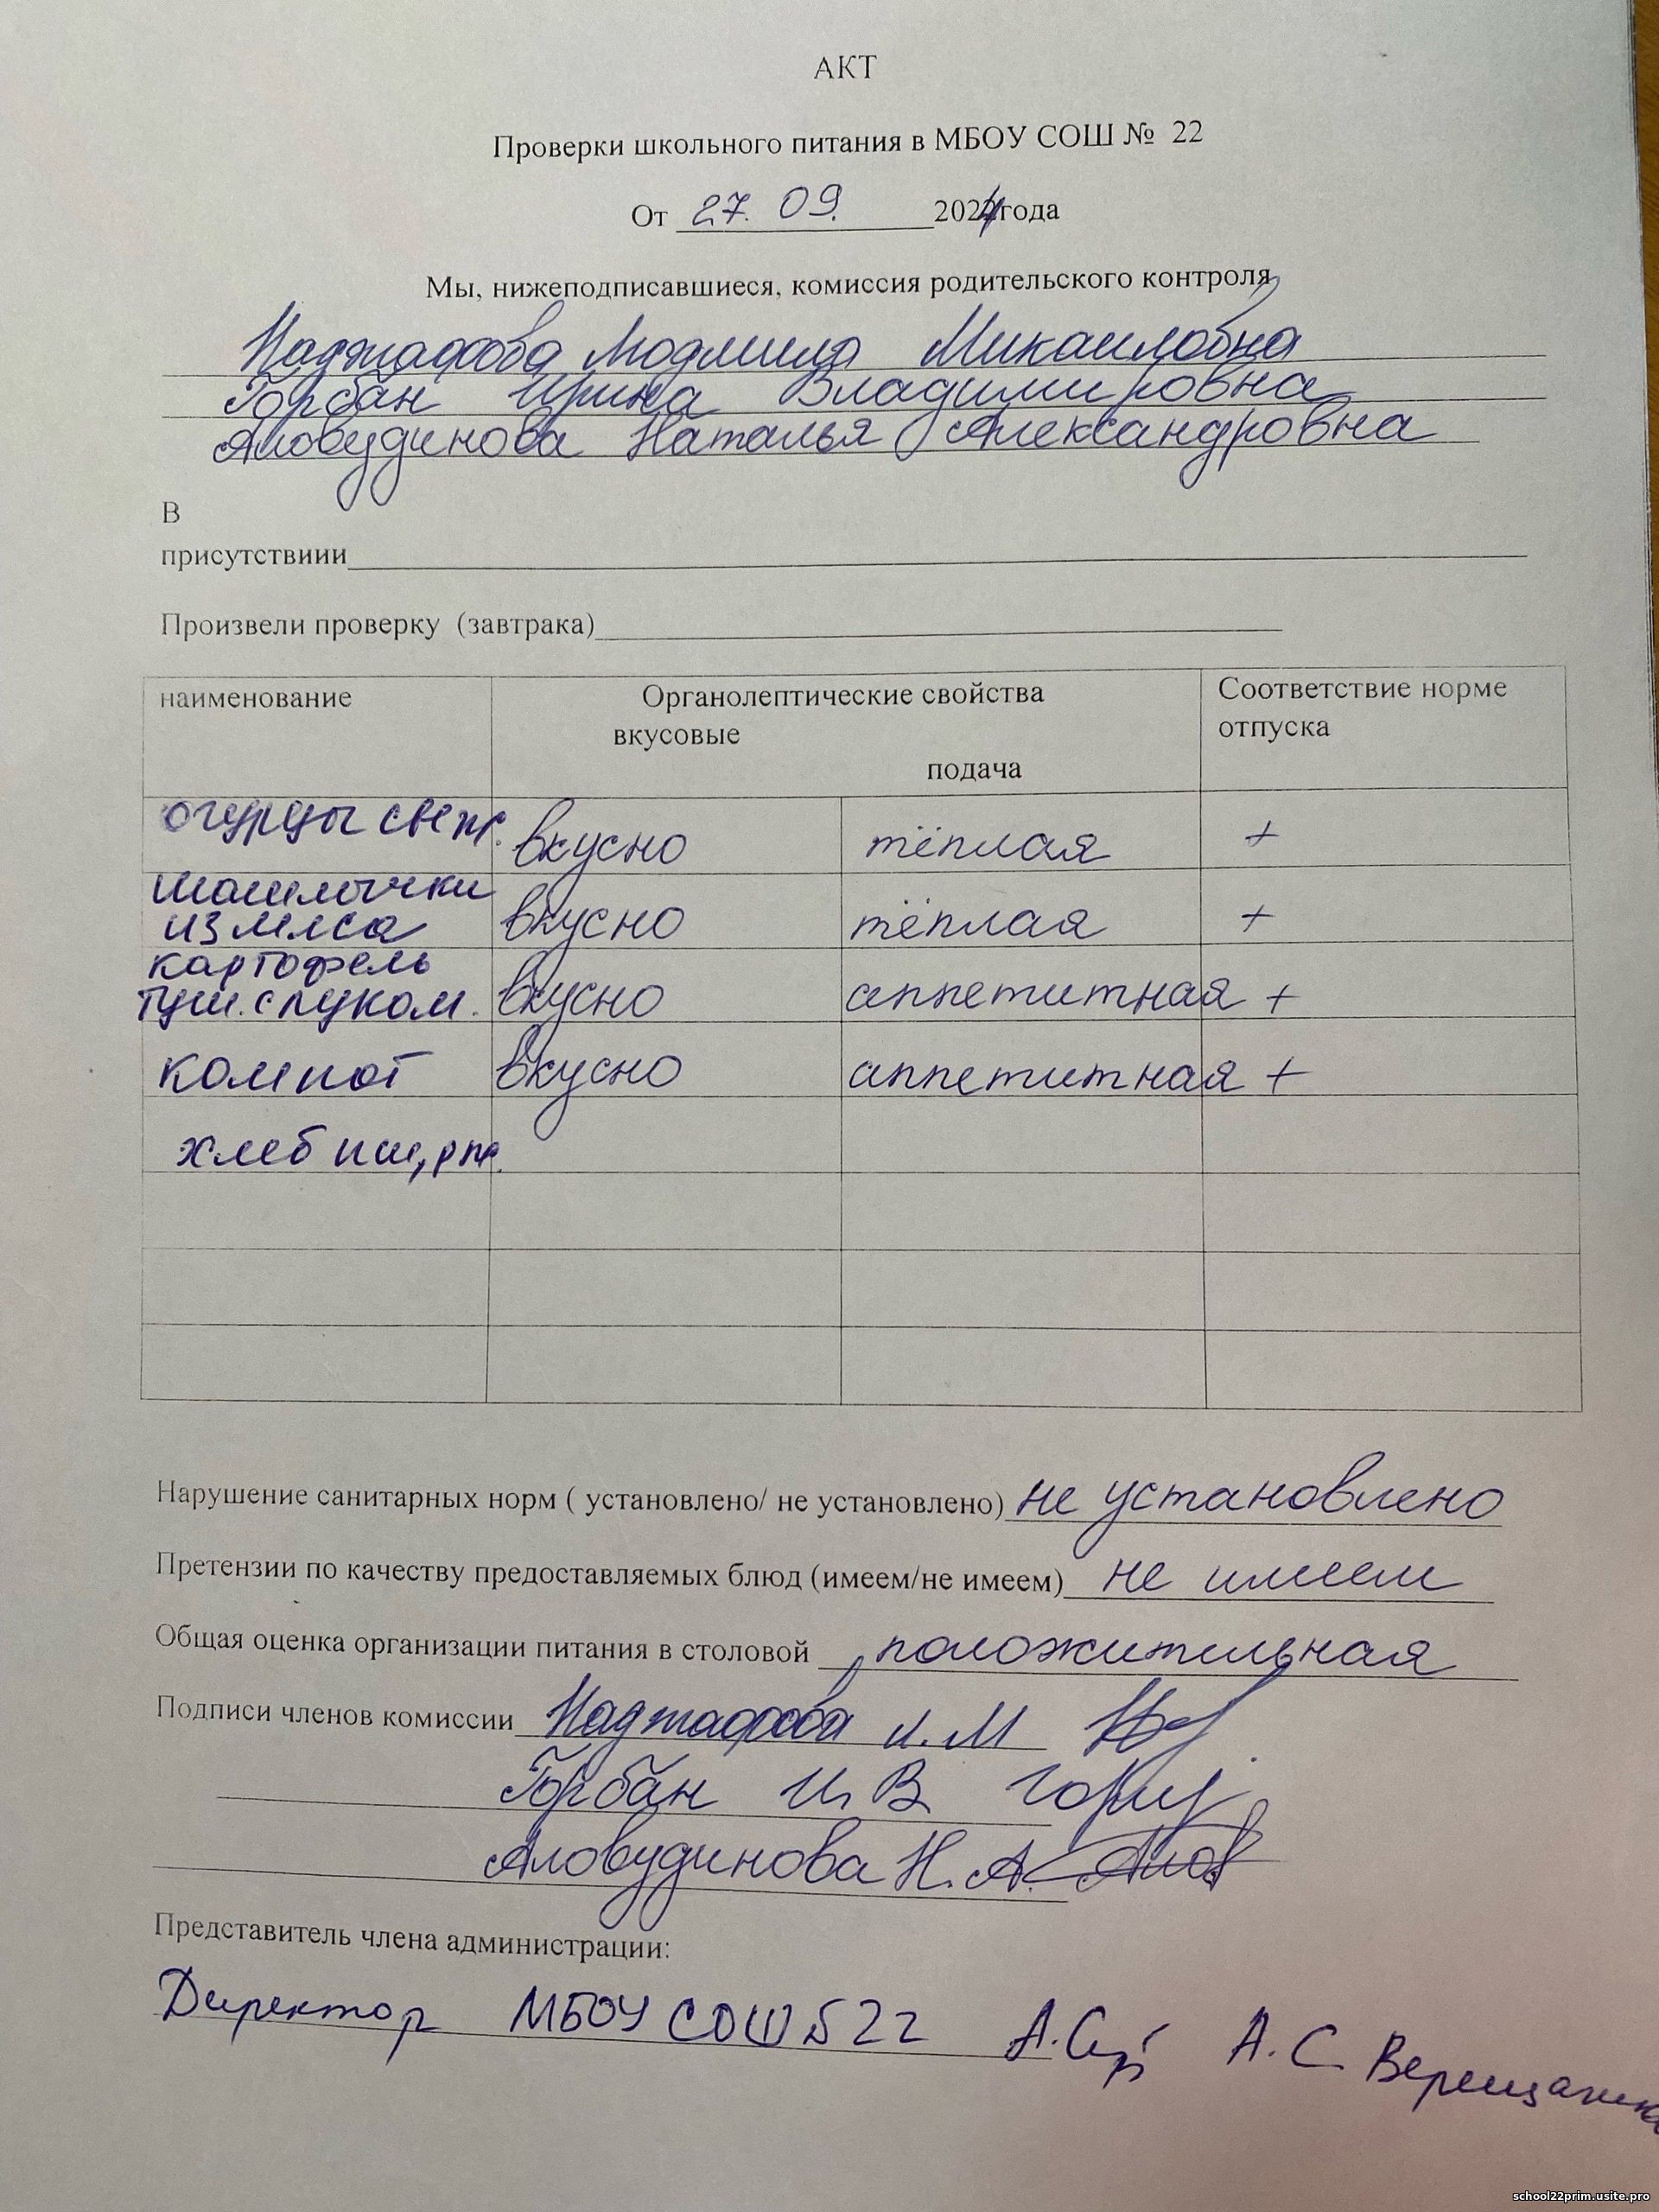 АКТ
Проверки школьного питания в МБОУ СОШ № 22
От 27. 09. 2024 года
Мы, нижеподписавшиеся, комиссия родительского контроля
Наджафова Людмила Микаиловна
Горбан Ирина Владимировна
Аловудинова Наталья Александровна
В
присутствиии
Произвели проверку (завтрака)
наименование Органолептические свойства Соответствие норме
вкусовые отпуска
подача
огурцы свеж. вкусно тёплая +
шашлычки
из мяса вкусно тёплая +
картофель
туш. с луком. вкусно аппетитная +
компот вкусно аппетитная +
хлеб пш, рж.
Нарушение санитарных норм ( установлено/ не установлено) не установлено
Претензии по качеству предоставляемых блюд (имеем/не имеем) не имеем
Общая оценка организации питания в столовой положительная
Подписи членов комиссии Наджафова Л.М
Горбан И. В
Аловудинова Н. А.
Представитель члена администрации:
Директор МБОУ СОШ №22 А. С. Верещагина
school22prim.usite.pro